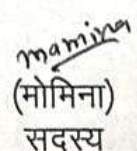 mamina
(मोमिना)
सदस्य